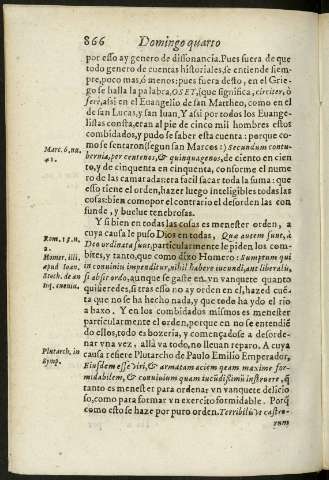 866 Domingo quarto
por esso ay genero de dissonancia. Pues fuera de que
todo genero de cuentas historiales, se entiende siem-
pre, poco mas, ò menos: pues fuera desto, en el Grie-
go se halla la palabra, OSET, q̃ significa, circiter, ò
ferè, assi en el Euangelio de san Mattheo, como en el
de san Lucas, y san Iuan, Y assi por todos los Euange-
listas consta, eran al pie de cinco mil hombres estos
combidados, y pudo se saber esta cuenta: porque co-
mo se sentaron (segun san Marcos:) Secundum contu-
Marc. 6. nu.
41.
bernia, per centenos, & quinquagenos, de ciento en cien
to, y de cinquenta en cinquenta, conforme el nume
ro de las camaradas: era facil sacar toda la suma: que
esso tiene el orden, hazer luego inteligibles todas las
cosas: bien como por el contrario el desorden las con
funde, y buelue tenebrosas.
Y si bien en todas las cosas es menester orden, a
cuya causa le puso Dios en todas, Quæ autem sunt, à
Rom. 13. n.
2.
Deo ordinata sunt, particularmente le piden los com-
bites, y tanto, que como dixo Homero: Sumptum qui
Homer. illi,
apud Ioan.
Stoch. de an
tiq. conuiu.
in conuiuiu impenditur, nihil habere iucundi, aut liberalis,
si absit ordo, aunque se gaste en vn vanquete quanto
quisieredes, si tras esso no ay orden en el, hazed cuẽ-
ta que no se ha hecho nada, y que todo ha ydo el rio
a baxo. Y en los combidados mismos es menester
particularmente el orden, porque en no se entendiẽ
do ellos, todo es bozeria, y començadose a desorde-
nar vna vez, allà va todo, no lleuan reparo. A cuya
causa refiere Plutarcho de Paulo Emilio Emperador,
Plutarch. in
Symp.
Eiusdem esse viri, & armatam aciem quam maxime for-
midabilem, & conuiuium quam iucũdissimũ instruere, q̃
tanto es menester para ordenar vn vanquete delicio
so, como para formar vn exercito formidable. Porq̃
como esto se haze por puro orden. Terribilis vt castro-
rum